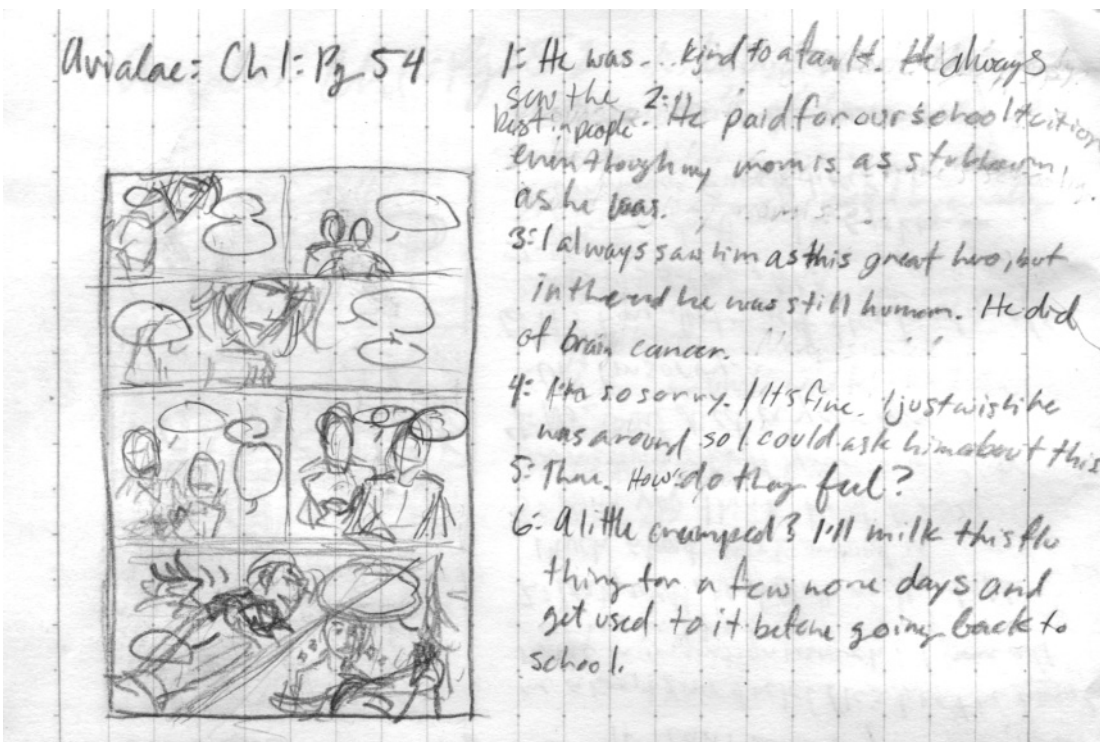 Avialae: Ch 1: Pg 54
1: He was... kind to a fault. He always
saw the
best in people.
2: He paid for our school tuition
even though my mom is as stubborn,
as he was.
3: I always saw him as this great hero, but
in the end he was still human. He did
of brain cancer.
4: I'm so sorry. / It's fine. I just wish he
was around so I could ask him about this
5: There. How do they feel?
6: A little cramped? I'll milk this flu
thing for a few more days and
get used to it before going back to
school.